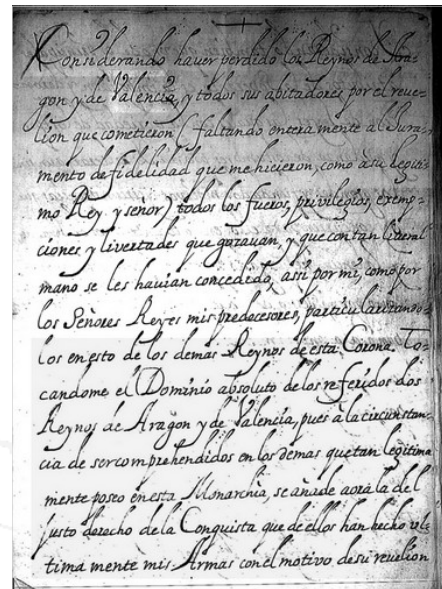 Considerando haver perdido los Reynos de Ara=
gon y de Valencia, y todos sus abitadores por el reve=
lion que cometieron (faltando enteramente al Jura=
mento de fidelidad que me hicieron, como à su legiti=
mo Rey, y señor) todos los fueros, privilegios, exemp=
ciones y livertades que gozavan, y que con tan liveral
mano se les havian concedido, assi por mi, como por
los Señores Reyes mis predecesores, particularizando=
los en esto de los demas Reynos de esta Corona. To=
candome el Dominio absoluto de los referidos dos
Reynos de Aragon y de Valencia, pues à la circunstan=
cia de ser comprehendidos en los demas que tan legitima
mente poseo en esta Monarchia, se añade aora la del
justo derecho de la Conquista que de ellos han hecho ul=
tima mente mis Armas con el motivo de su revelion